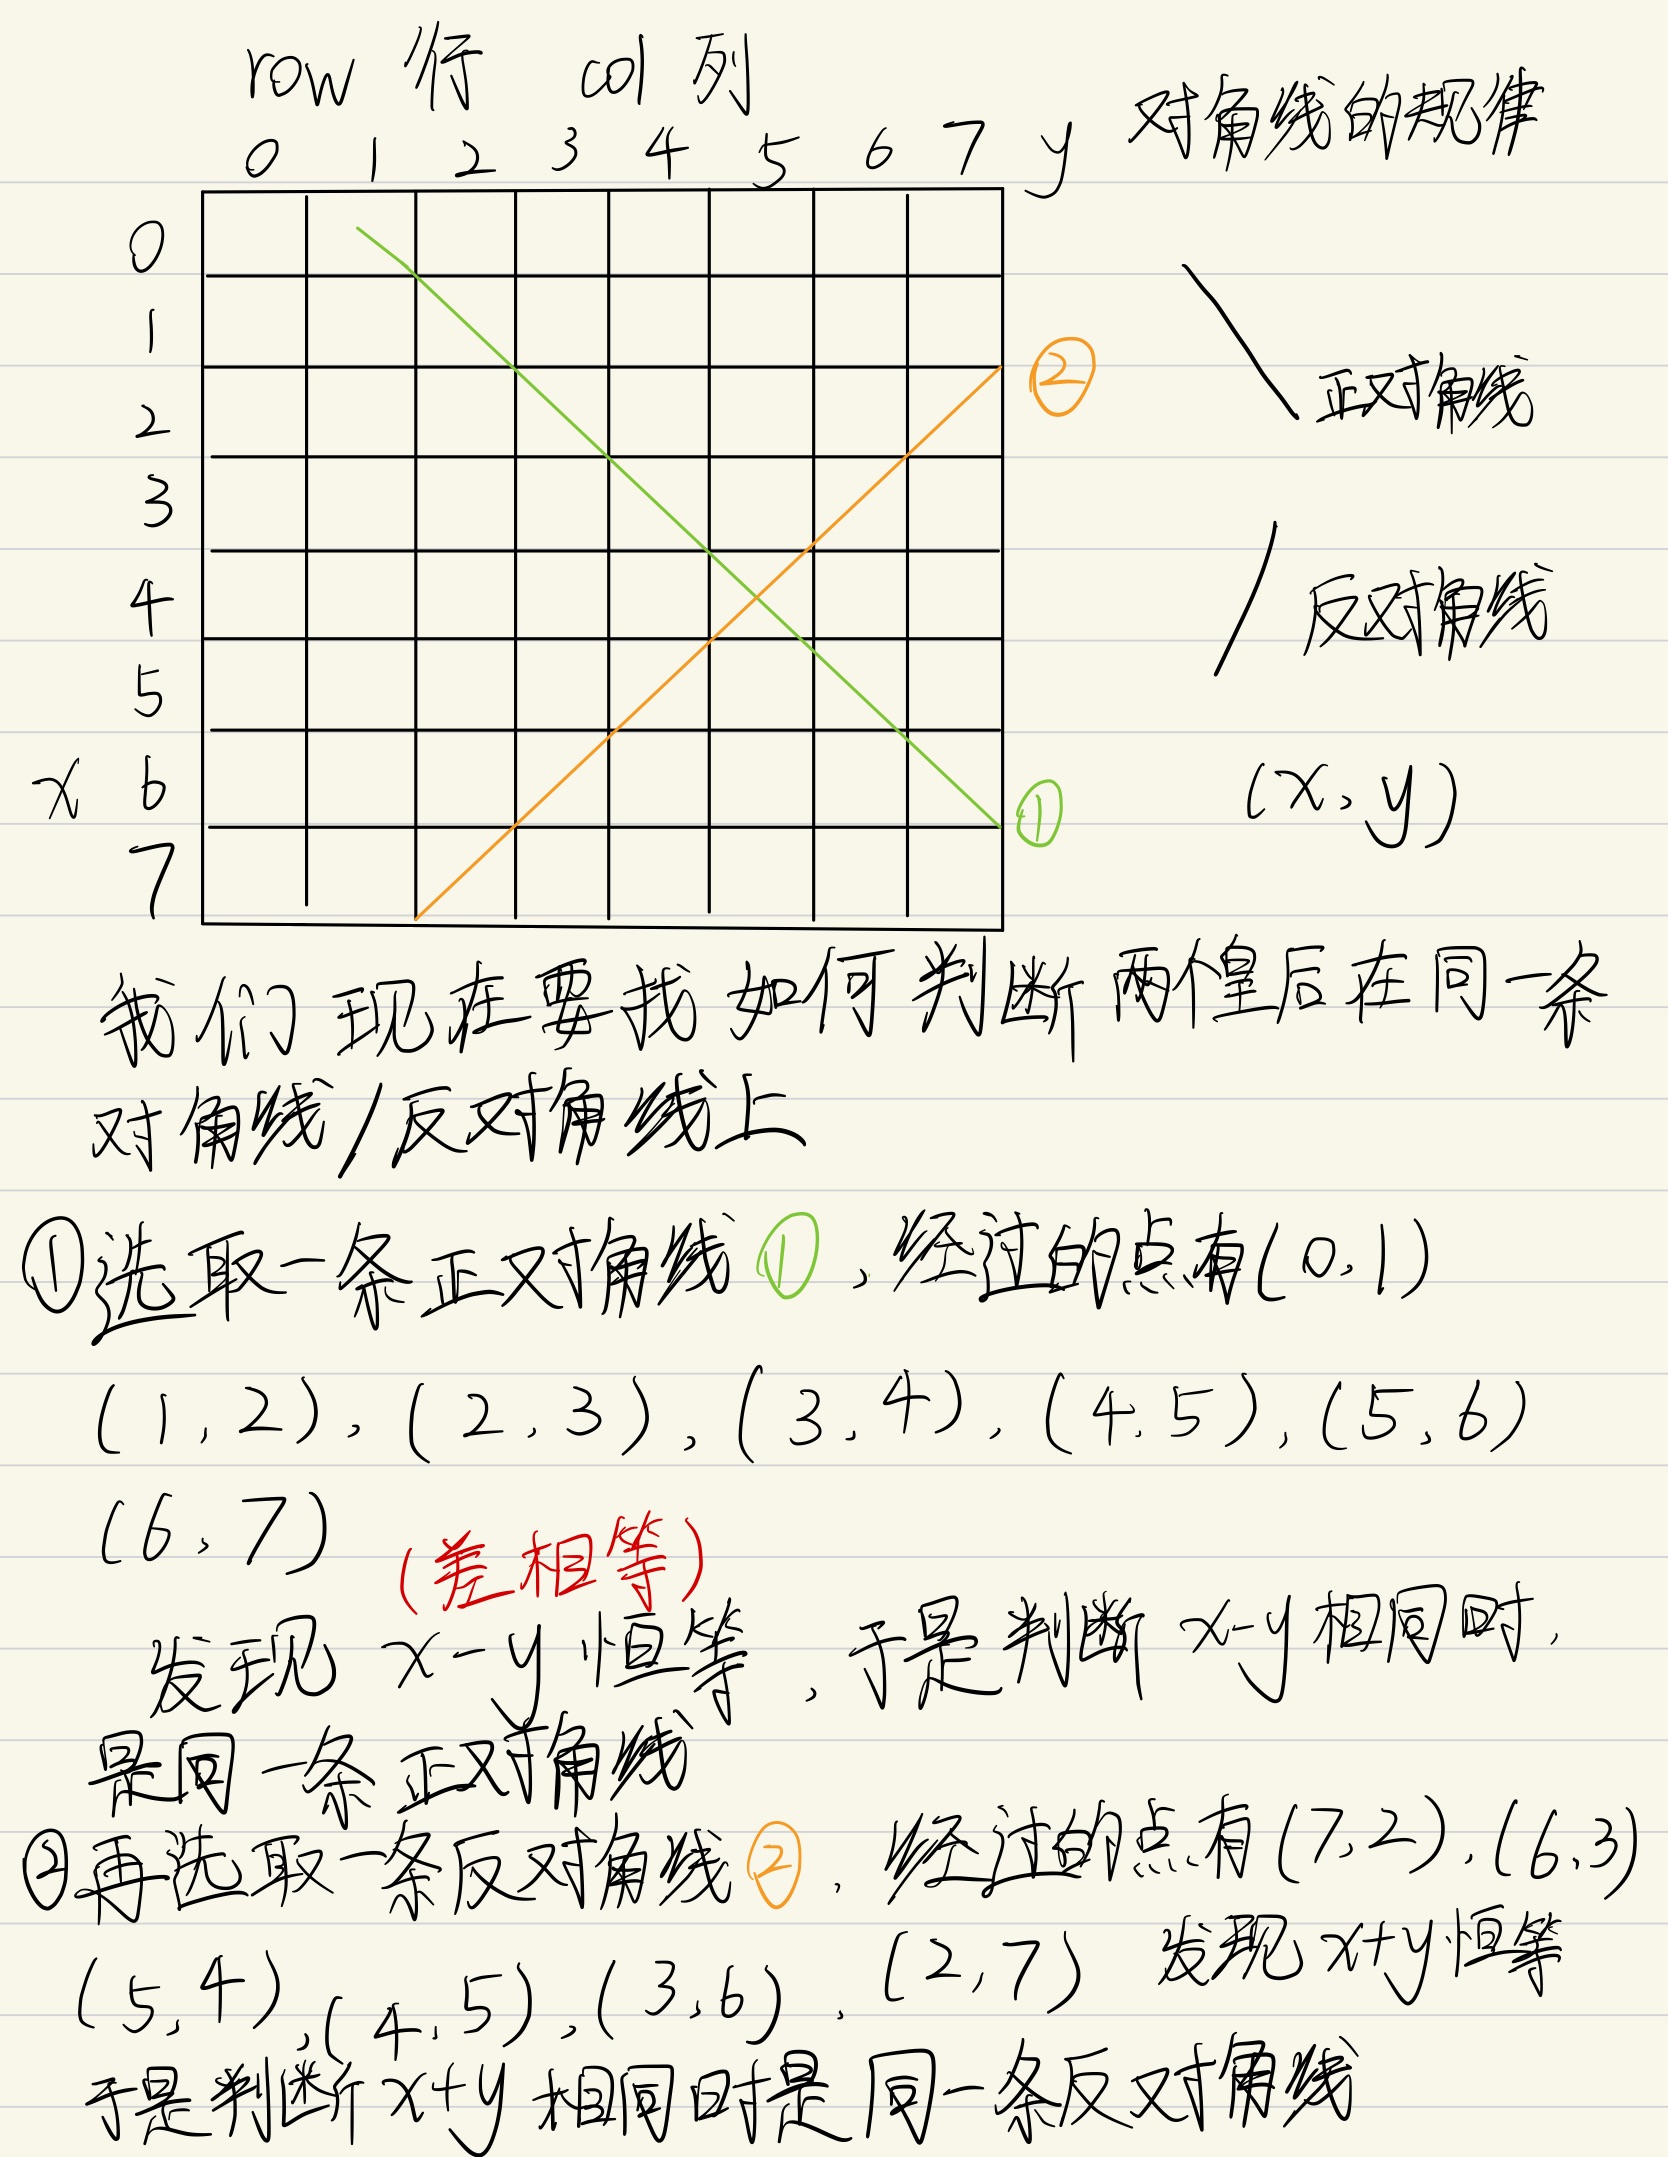 row 行 col 列
对角线的规律
0 1 2 3 4 5 6 7 y
0
1
②
2
正对角线
3
4
反对角线
5
x 6
①
(x, y)
7
我们现在要找如何判断两个皇后在同一条
对角线/反对角线上
①选取一条正对角线①,经过的点有(0,1)
(1,2),(2,3),(3,4),(4,5),(5,6)
(6,7)
(差相等)
发现 x-y 恒等,于是判断 x-y 相同时,
是同一条正对角线
②再选取一条反对角线②,经过的点有(7,2),(6,3)
(5,4),(4,5),(3,6),(2,7) 发现x+y恒等
于是判断x+y相同时是同一条反对角线